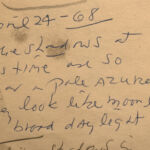 April 24-68
he shadows at
s time are so
a pale azure
g look like moon
broad day light